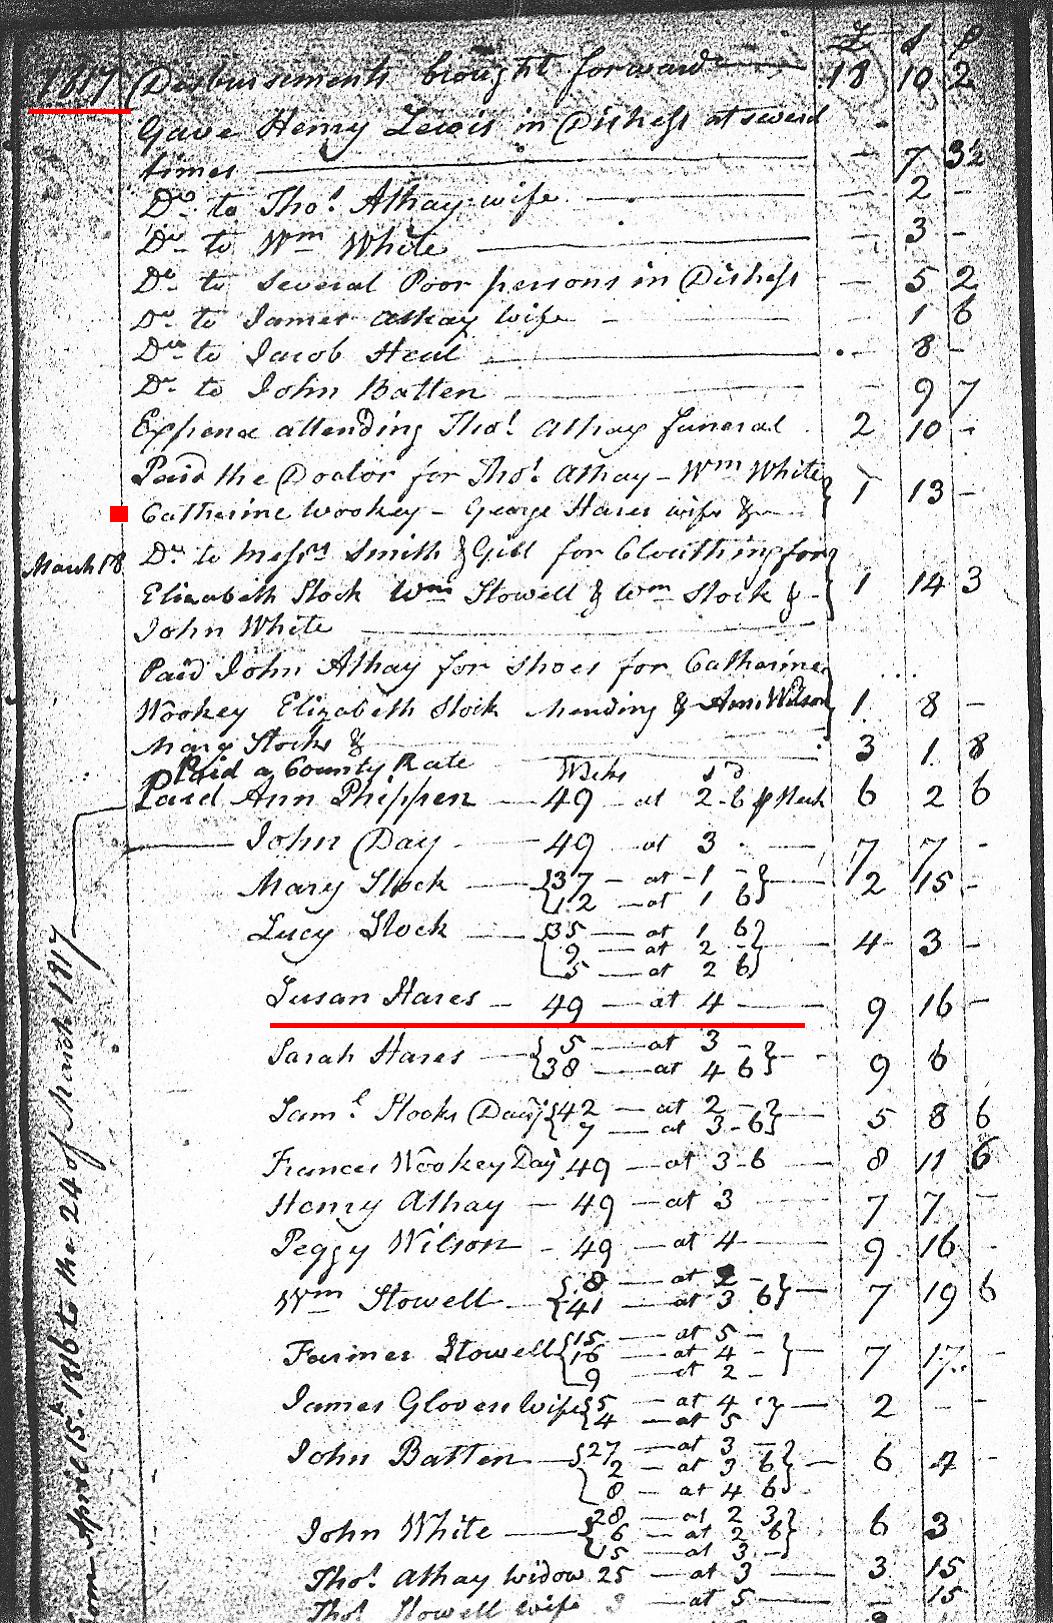 £ s d
1817 Disbursements brought forward 18 10 2
Gave Henry Lewis in Distress at several
times — 7 3½
Do. to Thos. Athay wife — 2 -
Do. to Wm White — 3 -
Do. to Several Poor persons in Distress — 5 2
Do. to James Athay wife — 1 6
Do. to Jacob Heal — 8 -
Do. to John Batten — 9 7
Expence attending Thos. Athay funeral 2 10 -
Paid the Doctor for Thos. Athay - Wm White
Catherine Wookey - George Hares wife & 1 13 -
March 18 Do. to Messrs Smith & Gill for Cloathing for
Elizabeth Stock Wm Stowell & Wm Stock & 1 14 3
John White
Paid John Athay for Shoes for Catherine
Wookey Elizabeth Stock Mending & Ann Wilson 1 8 -
Mary Stocks &
Paid a County Rate 3 1 8
Weeks s d
Paid Ann Phippen 49 at 2-6 p Week 6 2 6
John Day 49 at 3 7 7 -
Mary Stock 37 at 1 - 2 15 -
12 at 1 6
Lucy Stock 35 at 1 6
9 at 2 - 4 3 -
5 at 2 6
Susan Hares 49 at 4 9 16 -
Sarah Hares 5 at 3 -
38 at 4 6 9 6
Saml. Stocks Day 42 at 2 - 5 8 6
7 at 3-6
Frances Wookey Day 49 at 3-6 8 11 6
Henry Athay 49 at 3 7 7 -
Peggy Wilson 49 at 4 9 16 -
Wm Stowell 8 at 2 - 7 19 6
41 at 3 6
Farmer Stowell 15 at 5 -
16 at 4 - 7 17 -
9 at 2 -
James Glover wife 5 at 4 - 2 - -
4 at 5
John Batten 27 at 3 -
2 at 3 6 6 4 -
8 at 4 6
John White 28 at 2 3
6 at 2 6 6 3
15 at 3 -
Thos. Athay widow 25 at 3 3 15
Thos Stowell wife 3 at 5 - 15
from April 15th 1816 to the 24 of March 1817